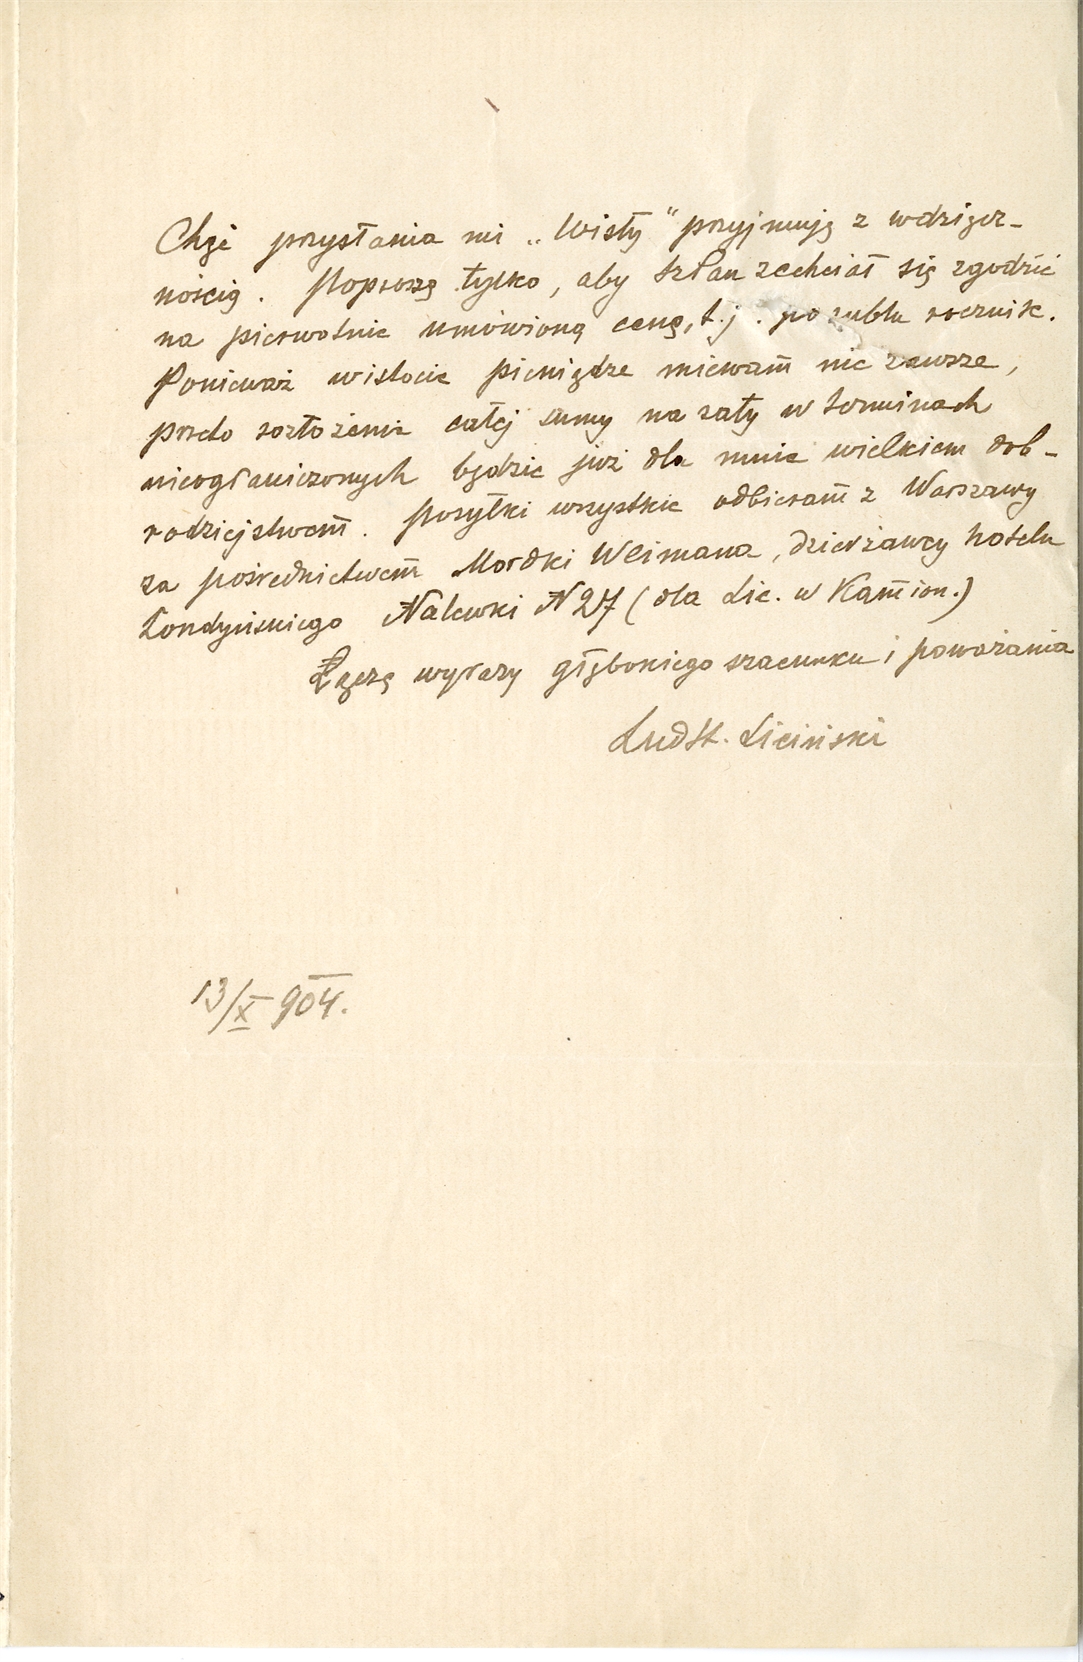 Chęć przysłania mi „Wisły” przyjmuję z wdzięcz-
nością. Poproszę tylko, aby SzPan zechciał się zgodzić
na pierwotnie umówioną cenę, t.j. po rublu rocznik.
Ponieważ w istocie pieniądze miewam nie zawsze,
przeto rozłożenie całej sumy na raty w terminach
nieograniczonych będzie już dla mnie wielkiem dob-
rodziejstwem. Posyłki wszystkie odbieram z Warszawy
za pośrednictwem Mordki Weimana, dzierżawcy hotelu
Londyńskiego Nalewki N 27 (dla Lic. w Kamion.)
Łączę wyrazy głębokiego szacunku i poważania
LudSt. Liciński
13/X 904.